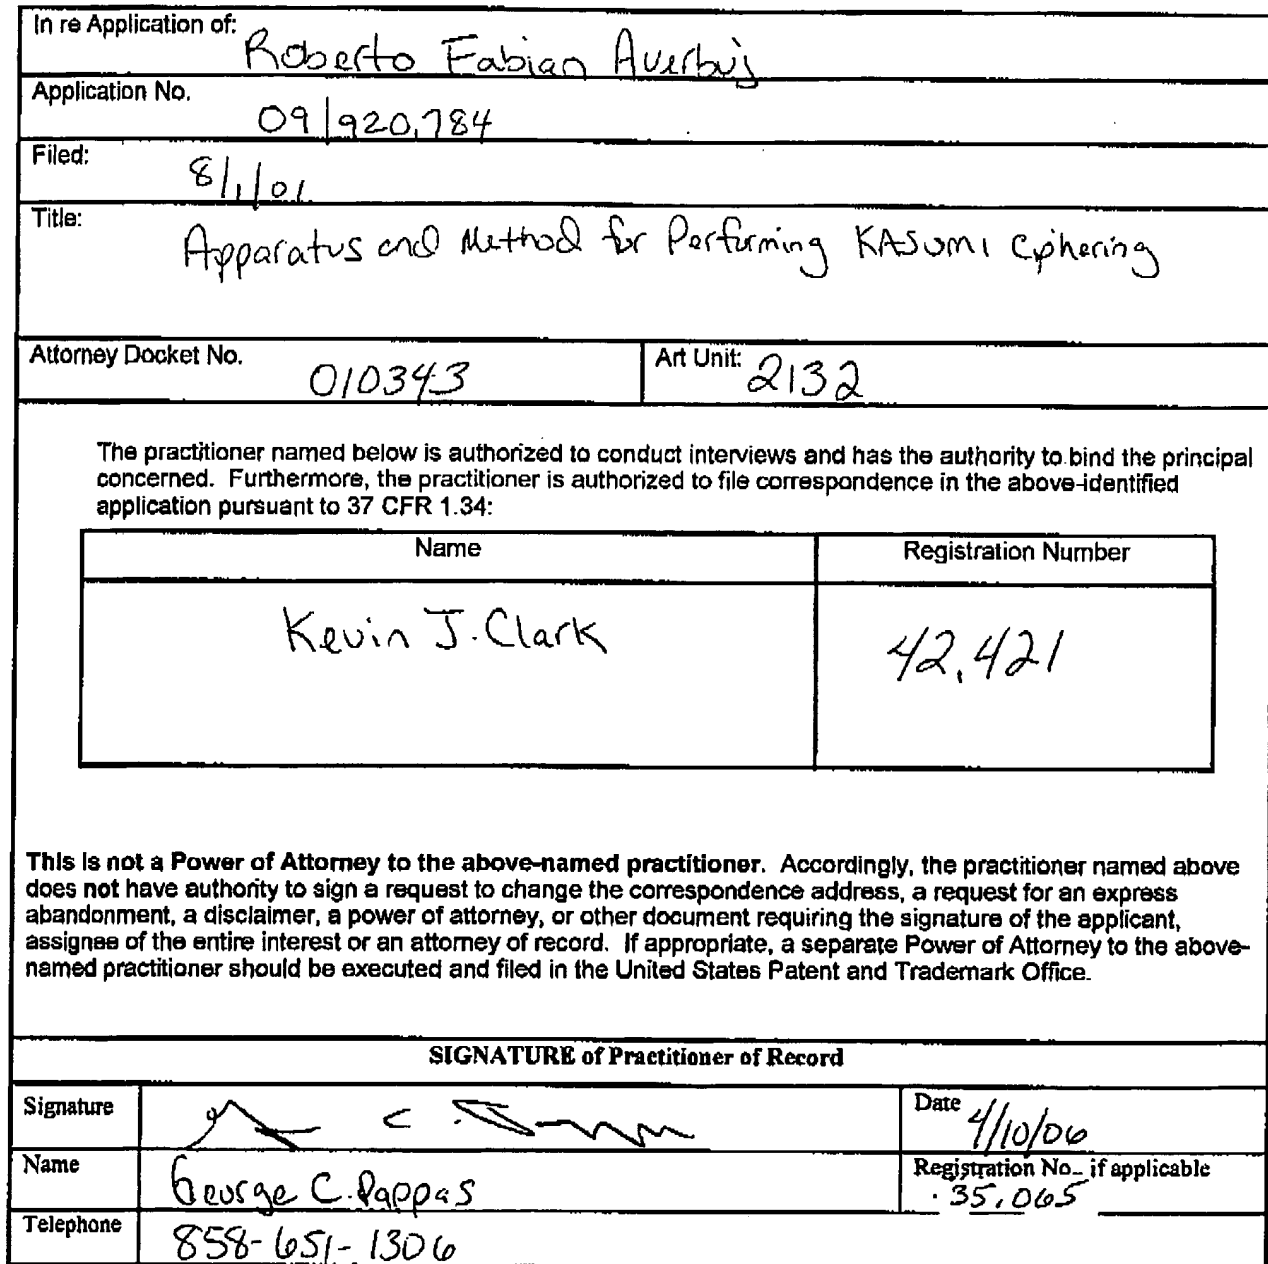 In re Application of: Roberto Fabian Averbuj
Application No. 09/920,784
Filed: 8/1/01
Title: Apparatus and Method for Performing KASUMI Ciphering
Attorney Docket No. 010343 Art Unit: 2132
The practitioner named below is authorized to conduct interviews and has the authority to bind the principal
concerned. Furthermore, the practitioner is authorized to file correspondence in the above-identified
application pursuant to 37 CFR 1.34:
Name Registration Number
Kevin J. Clark 42,421
This is not a Power of Attorney to the above-named practitioner. Accordingly, the practitioner named above
does not have authority to sign a request to change the correspondence address, a request for an express
abandonment, a disclaimer, a power of attorney, or other document requiring the signature of the applicant,
assignee of the entire interest or an attorney of record. If appropriate, a separate Power of Attorney to the above-
named practitioner should be executed and filed in the United States Patent and Trademark Office.
SIGNATURE of Practitioner of Record
Signature Date 4/10/06
Name George C. Pappas Registration No. if applicable
35,065
Telephone 858-651-1306